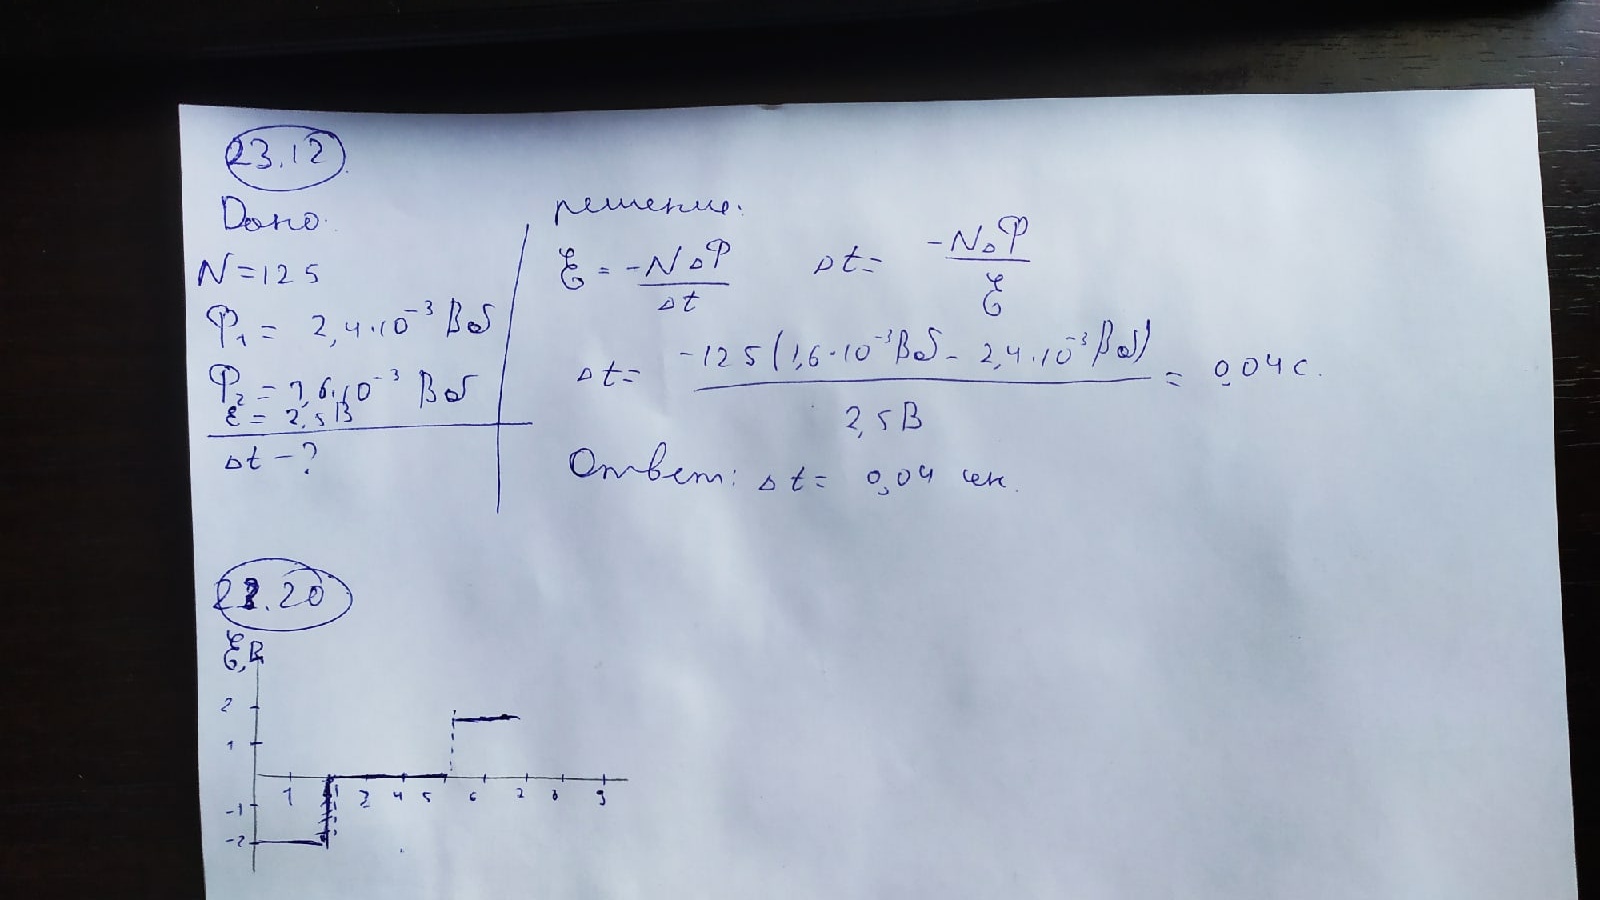 23.12
Дано:
N = 125
Φ₁ = 2,4·10⁻³ Вб
Φ₂ = 1,6·10⁻³ Вб
ℰ = 2,5 В
Δt - ?
решение:
ℰ = -NΔΦ / Δt Δt = -NΔΦ / ℰ
Δt = -125(1,6·10⁻³Вб - 2,4·10⁻³Вб) / 2,5 В = 0,04 с.
Ответ: Δt = 0,04 сек.
ℰ,В
2
1
1 3 4 5 6 7 8 9
-1
-2